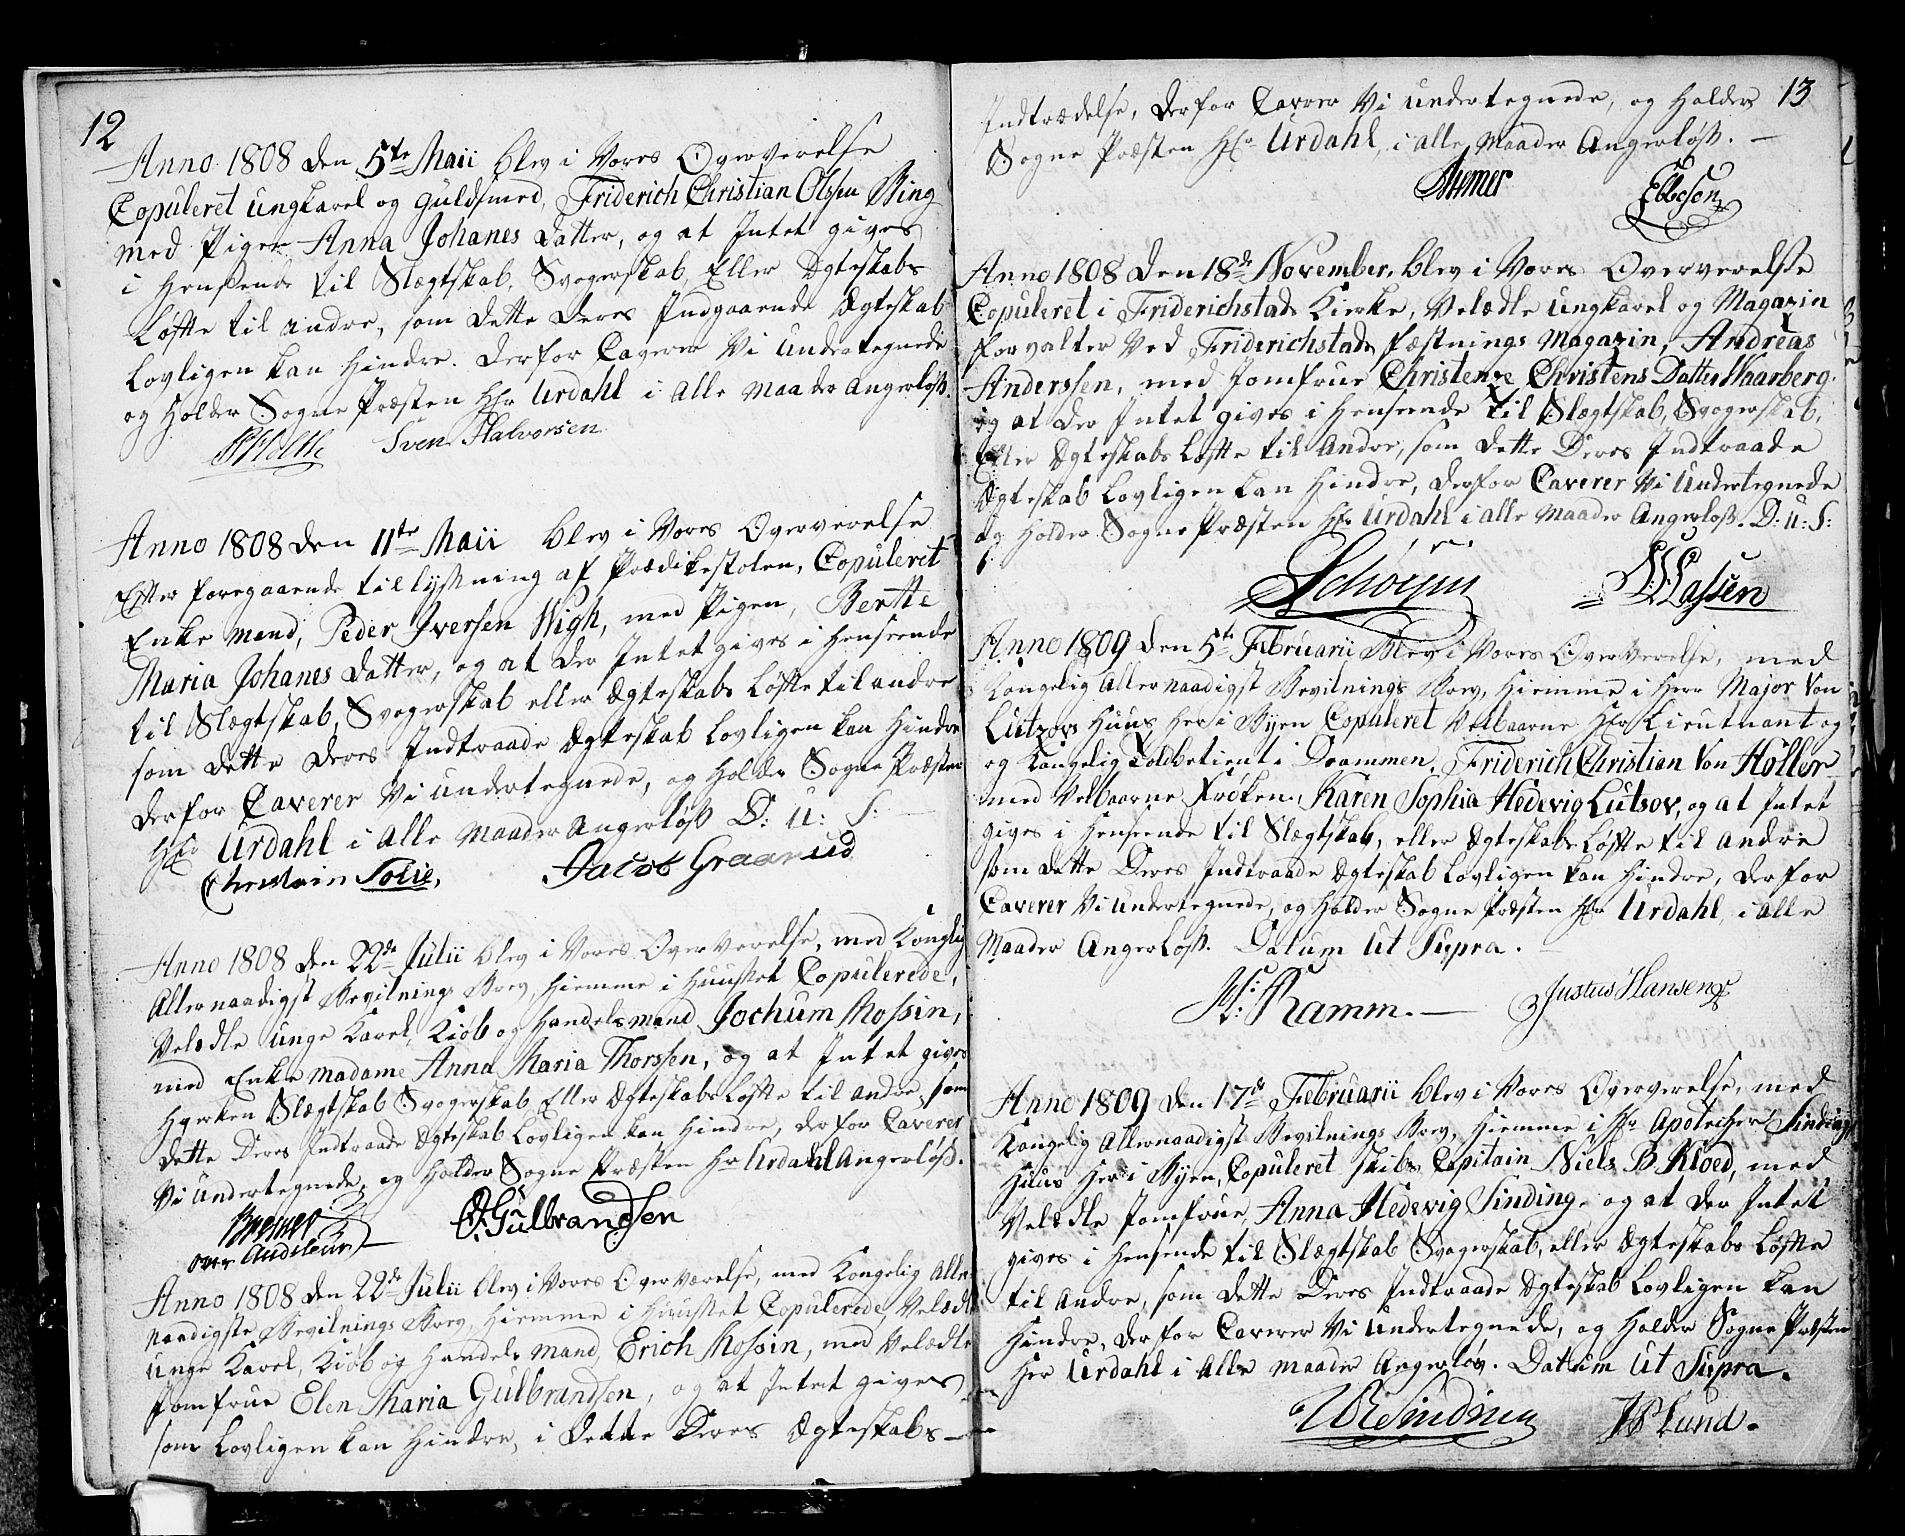 12
Anno 1808 den 5te Maii blev i Vores Overværelse
Copuleret Ungkarel og Guldsmed, Friderich Christian Olsen Ring
med Pigen Anna Johanes datter, og at Intet gives
i Henseende til Slægtskab, Svogerskab, Eller Ægteskabs
Løfte til andre, som dette deres Indgaaende Ægteskab
Lovligen kan Hindre. derfor Caverer Vi Undertegnede
og Holder Sogne Præsten Hr Urdahl i Alle Maader Angerløs.
Sven Halvorsen
Anno 1808 den 11te Maii blev i Vores Overværelse
Efter foregaaende tillysning af Prædikestolen, Copuleret
Enke mand, Peder Iversen Wigh, med Pigen, Berthe
Maria Johanes datter, og at der Intet gives i Henseende
til Slægtskab, Svogerskab eller Ægteskabs Løfte til andre
som dette deres Indtraade Ægteskab Lovligen kan Hindre
derfor Caverer Vi Undertegnede, og Holder Sogne Præsten
Hr Urdahl i Alle Maader Angerløs D: U: S:
Christian Solie, Jacob Graarud
Anno 1808 den 22de Julii blev i Vores Overværelse, med Konglig
Allernaadigst Bevilnings Brev, Hiemme i Huuset Copulerede,
Velædle unge Karel, Kiøb og Handelsmand Jochum Mossin,
med Enke madame Anna Maria Thorssen, og at Intet gives
Hverken Slægtskab Svogerskab Eller Ægteskabs Løfte til andre, som
dette Deres Indtraade Ægteskab Lovligen kan Hindre, derfor Caverer
Vi Undertegnede, og Holder Sogne Præsten Hr Urdahl Angerløs.
Bremer O. Gulbrandsen
over Auditeur
Anno 1808 den 22de Julii blev i Vores Overværelse, med Kongelig Aller
naadigste Bevilnings Brev, Hiemme i Huuset Copulerede, Velædle
unge Karel, Kiøb og Handels mand, Erich Mossin, med Velædle
Jomfrue Elen Maria Gulbrandsen, og at Intet gives
som Lovligen kan Hindre, i dette Deres Ægteskabs
13
Indtrædelse, derfor Caverer Vi undertegnede, og Holder
Sogne Præsten Hr Urdahl, i alle Maader Angerløs.
Bremer Ebbesen
Anno 1808 Den 18de November, blev i Vores Overværelse
Copuleret i Friderichstads Kierke, Velædle Ungkarel og Magazin
forvalter Ved Friderichstads fæstnings Magazin, Andreas
Anderssen, med Jomfrue Christenze Christens Datter Haarberg.
og at der Intet gives i Henseende til Slægtskab, Svogerskab,
Eller Ægteskabs Løfte til Andre, som dette Deres Indtraade
Ægteskab Lovligen kan Hindre, derfor Caverer Vi Undertegnede
og Holder Sogne Præsten Hr Urdahl i alle Maader Angerløs. D: U: S:
Lassen
Anno 1809 den 5te Februarii Blev i Vores Overværelse, med
Kongelig Allernaadigst Bevilnings Brev, Hiemme i Herr Major Von
Lutzovs Huus her i Byen Copuleret Velbaarne Hr Lieutnant og
og Kongelig Toldbetient i Drammen, Friderich Christian Von Höller
med Velbaarne Frøken, Karen Sophia Hedevig Lutsov, og at Intet
gives i Henseende til Slægtskab, eller Ægteskabs Løfte til Andre
som dette Deres Indtraade Ægteskab Lovligen kan Hindre, derfor
Caverer Vi undertegnede, og Holder Sogne Præsten Hr Urdahl, i alle
Maader Angerløs. Datum Ut Supra.
Ramm. Justus Hansen
Anno 1809 den 17de Februarii blev i Vores Overværelse, med
Kongelig Allernaadigst Bevilnings Brev, Hiemme i Hr Apothecher Sindings
Huus Her i Byen, Copuleret Skibs Capitain Niels B. Kloed, med
Velædle Jomfrue, Anna Hedevig Sinding, og at der Intet
gives i Henseende til Slægtskab Svogerskab, eller Ægteskabs Løfte
til Andre, som dette Deres Indtraade Ægteskab Lovligen kan
Hindre, derfor Caverer Vi Undertegnede, og Holder Sogne Præsten
Her Urdahl i Alle Maader Angerløs. Datum Ut Supra.
Sinding Lund.